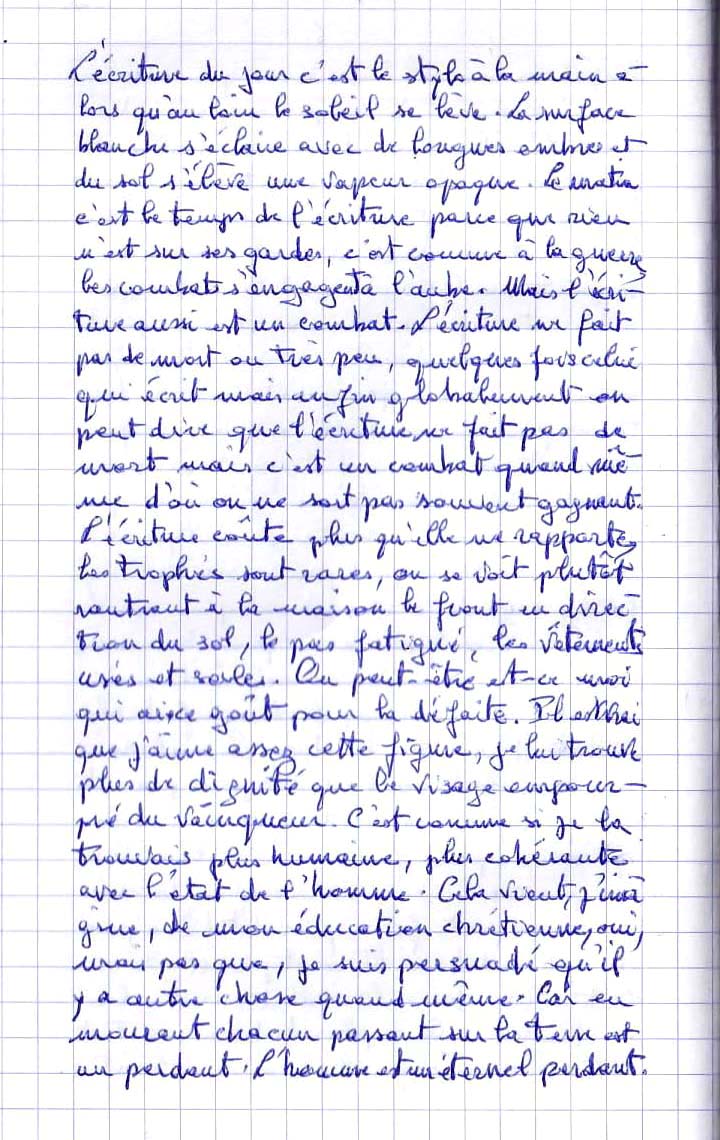 L'écriture du jour c'est le stylo à la main a-
lors qu'au loin le soleil se lève. La surface
blanche s'éclaire avec de longues ombres et
du sol s'élève une vapeur opaque. Le matin
c'est le temps de l'écriture parce que rien
n'est sur ses gardes, c'est comme à la guerre,
les combats s'engagent à l'aube. Mais l'écri-
ture aussi est un combat. L'écriture ne fait
pas de mort ou très peu, quelques fois celui
qui écrit mais enfin globalement on
peut dire que l'écriture ne fait pas de
mort mais c'est un combat quand mê-
me d'où on ne sort pas souvent gagnant.
L'écriture coûte plus qu'elle ne rapporte,
les trophés sont rares, on se voit plutôt
rentrant à la maison le front en direc-
tion du sol, le pas fatigué, les vêtements
usés et sales. Ou peut-être est-ce moi
qui ai ce goût pour la défaite. Il est vrai
que j'aime assez cette figure, je lui trouve
plus de dignité que le visage empour-
pré du vainqueur. C'est comme si je la
trouvais plus humaine, plus cohérante
avec l'état de l'homme. Cela vient, j'ima
gine, de mon éducation chrétienne, oui,
mais pas que, je suis persuadé qu'il
y a autre chose quand même. Car en
mourant chacun passant sur la terre est
un perdant. L'homme est un éternel perdant.